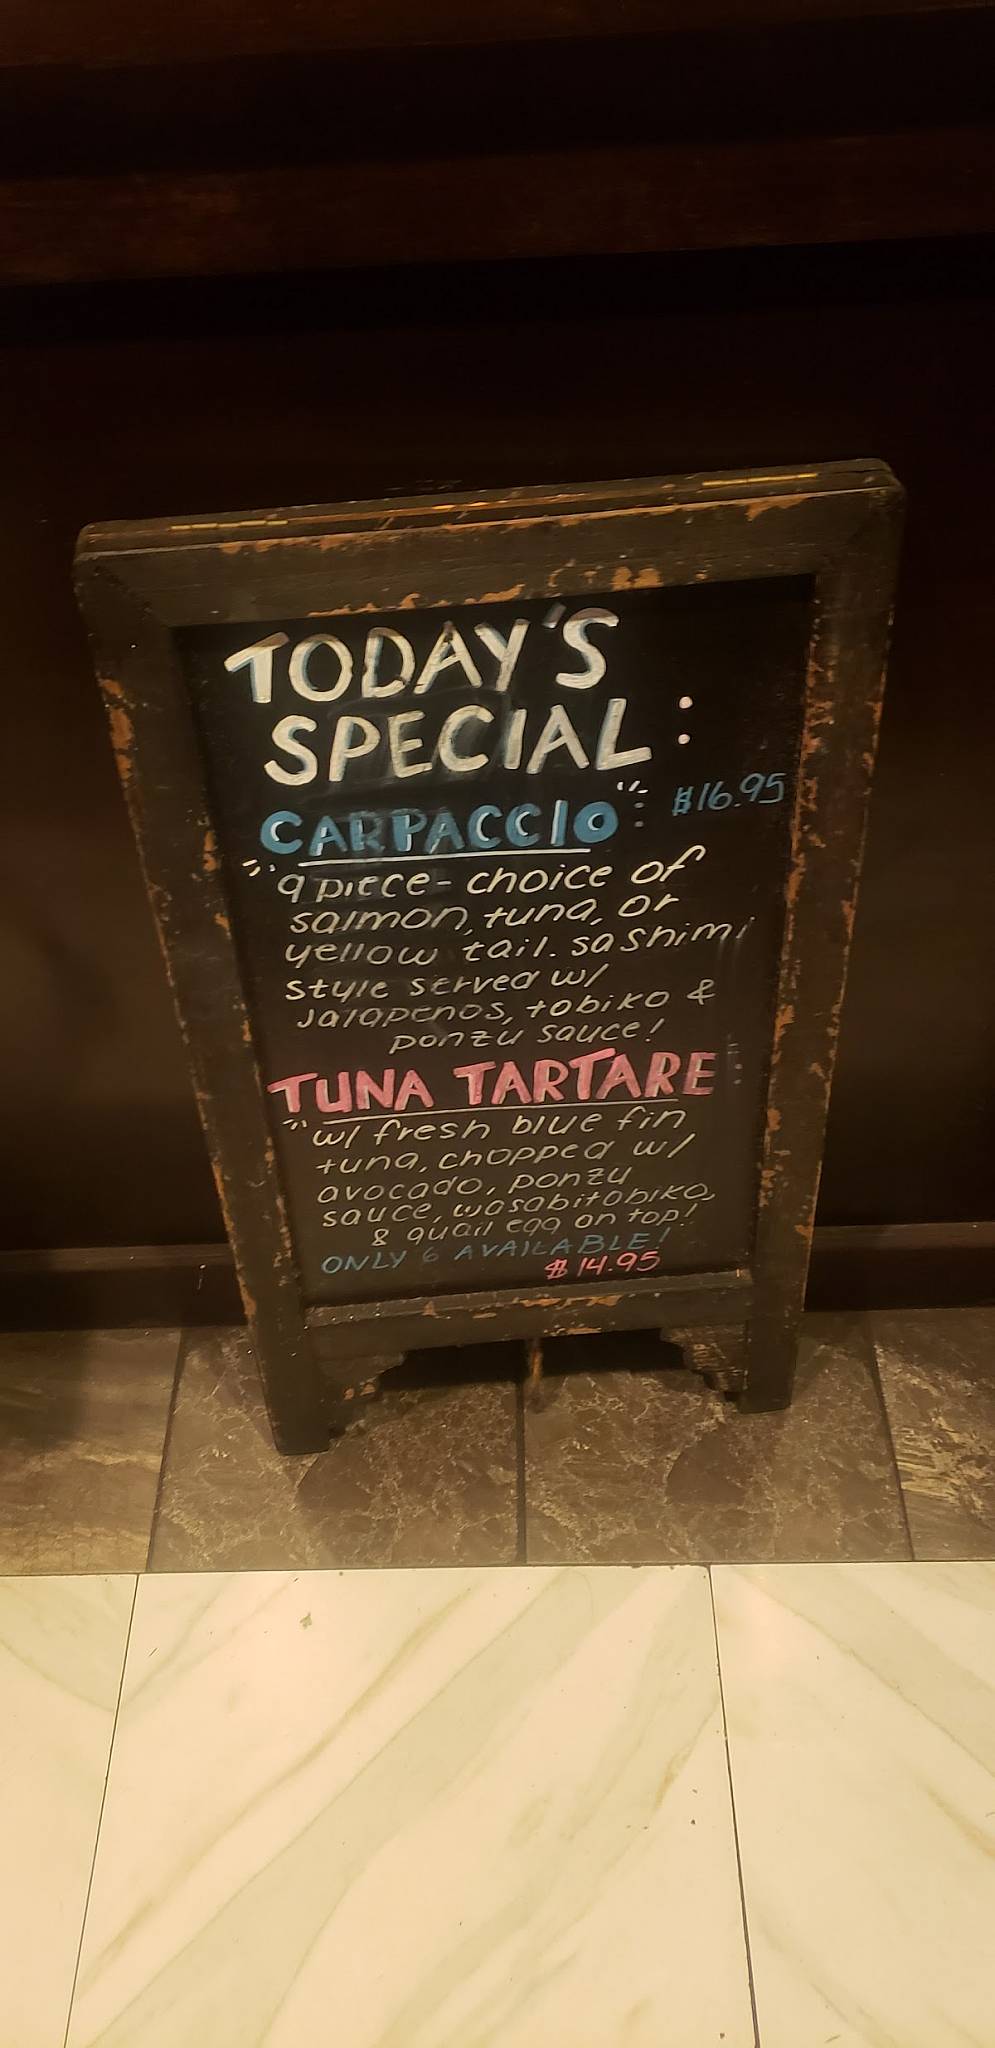 TODAY'S
SPECIAL:
CARPACCIO: $16.95
"9 piece - choice of
salmon, tuna, or
yellow tail. sashimi
style served w/
Jalapenos, tobiko &
ponzu sauce!
TUNA TARTARE:
"w/ fresh blue fin
tuna, chopped w/
avocado, ponzu
sauce, wasabi tobiko,
& quail egg on top!
ONLY 6 AVAILABLE!
$14.95